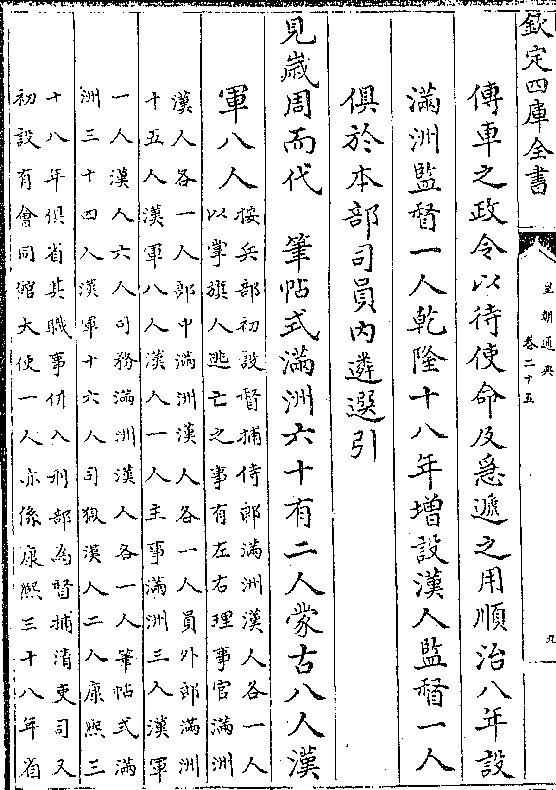 欽定四庫全書
皇朝通典
卷二十五
九
傳車之政令以待使命及急遞之用順治八年設
滿洲監督一人乾隆十八年增設漢人監督一人
俱於本部司員內遴選引
見歲周而代　筆帖式滿洲六十有二人蒙古八人漢
軍八人
按兵部初設督捕侍郎滿洲漢人各一人
以掌旗人逃亡之事有左右理事官滿洲
漢人各一人郎中滿洲漢人各一人員外郎滿洲
十五人漢軍八人漢人一人主事滿洲三人漢軍
一人漢人六人司務滿洲漢人各一人筆帖式滿
洲三十四人漢軍十六人司獄漢人二人康熙三
十八年俱省其職事併入刑部為督捕清吏司又
初設有會同館大使一人亦係康熙三十八年省